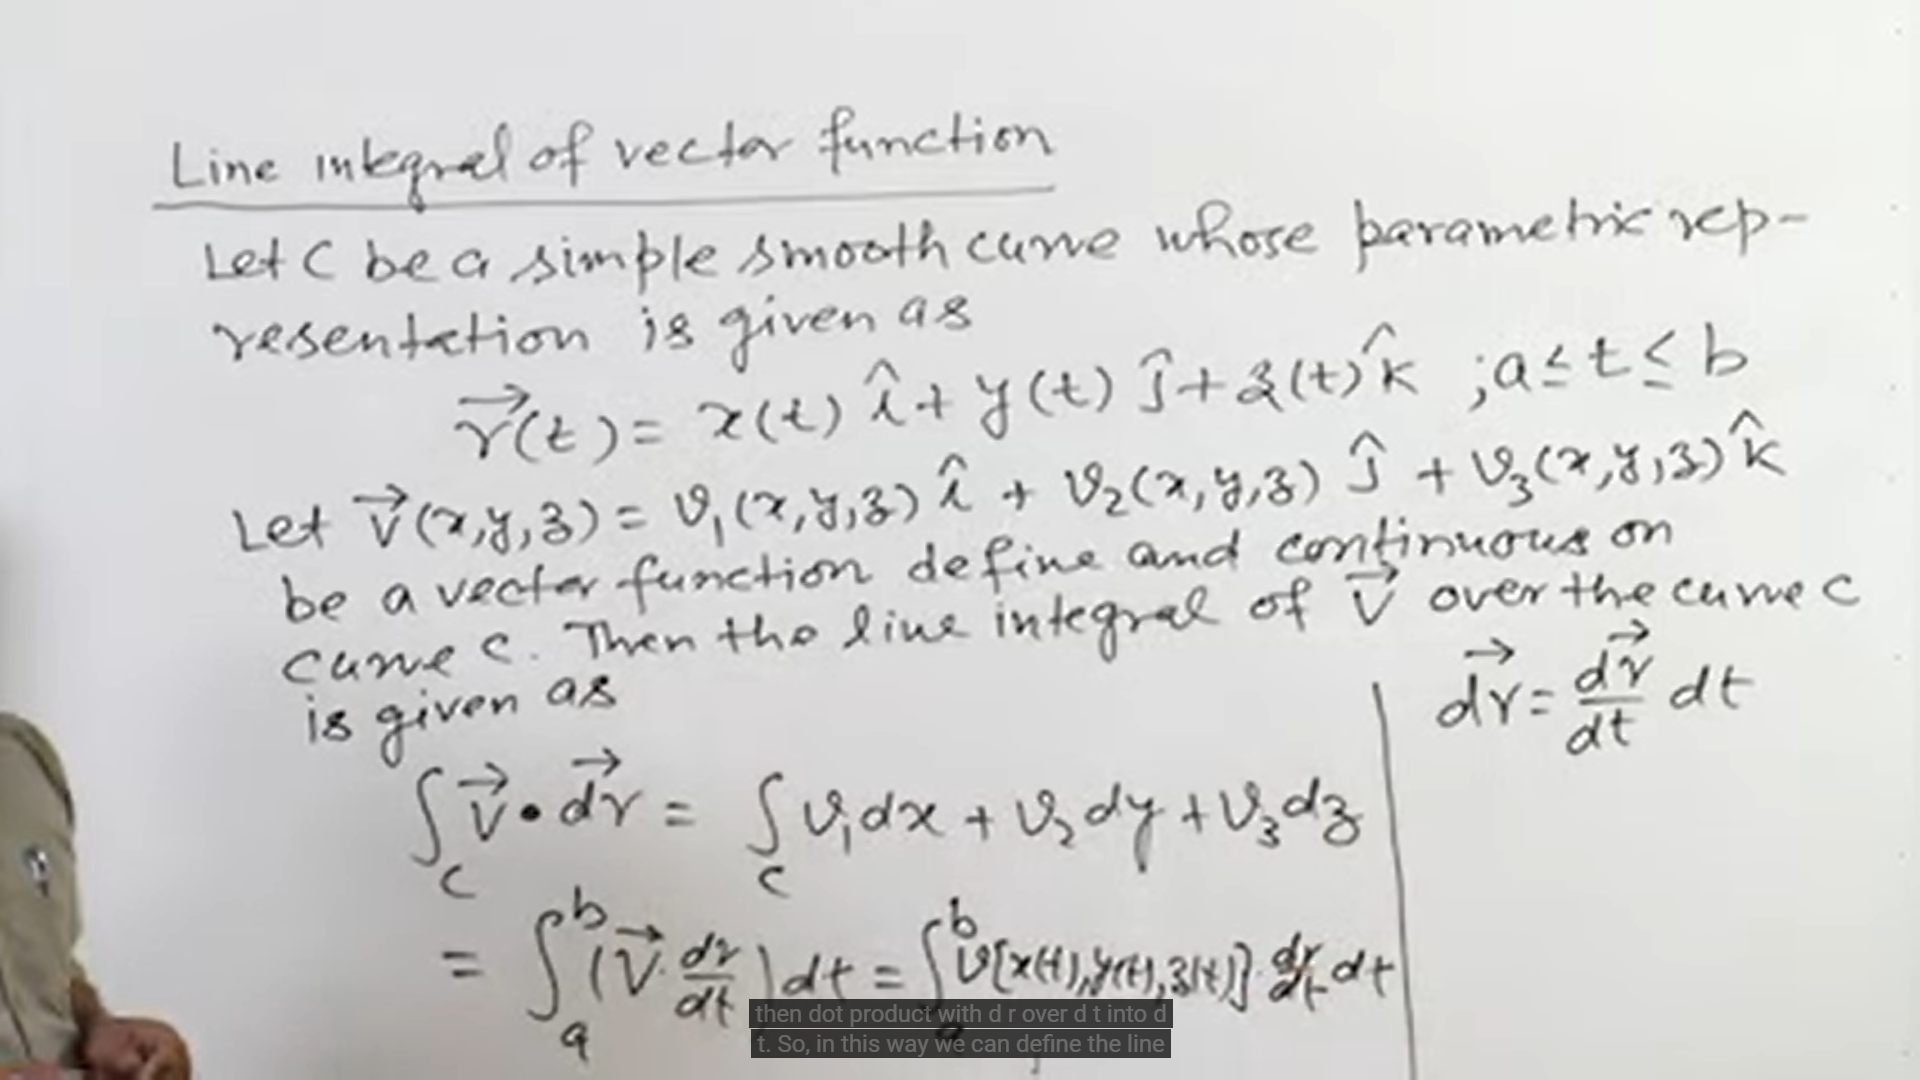 Line integral of vector function
Let C be a simple smooth curve whose parametric rep-
resentation is given as
r⃗(t) = x(t) î + y(t) ĵ + z(t) k̂ ; a ≤ t ≤ b
Let V⃗(x,y,z) = v₁(x,y,z) î + v₂(x,y,z) ĵ + v₃(x,y,z) k̂
be a vector function define and continuous on
curve C. Then the line integral of V⃗ over the curve C
is given as
d⃗r = d⃗r/dt dt
∫_C V⃗ • d⃗r = ∫_C v₁dx + v₂dy + v₃dz
= ∫_a^b (V⃗ · dr/dt) dt = ∫_a^b v[x(t), y(t), z(t)] · dr/dt dt
then dot product with d r over d t into d
t. So, in this way we can define the line